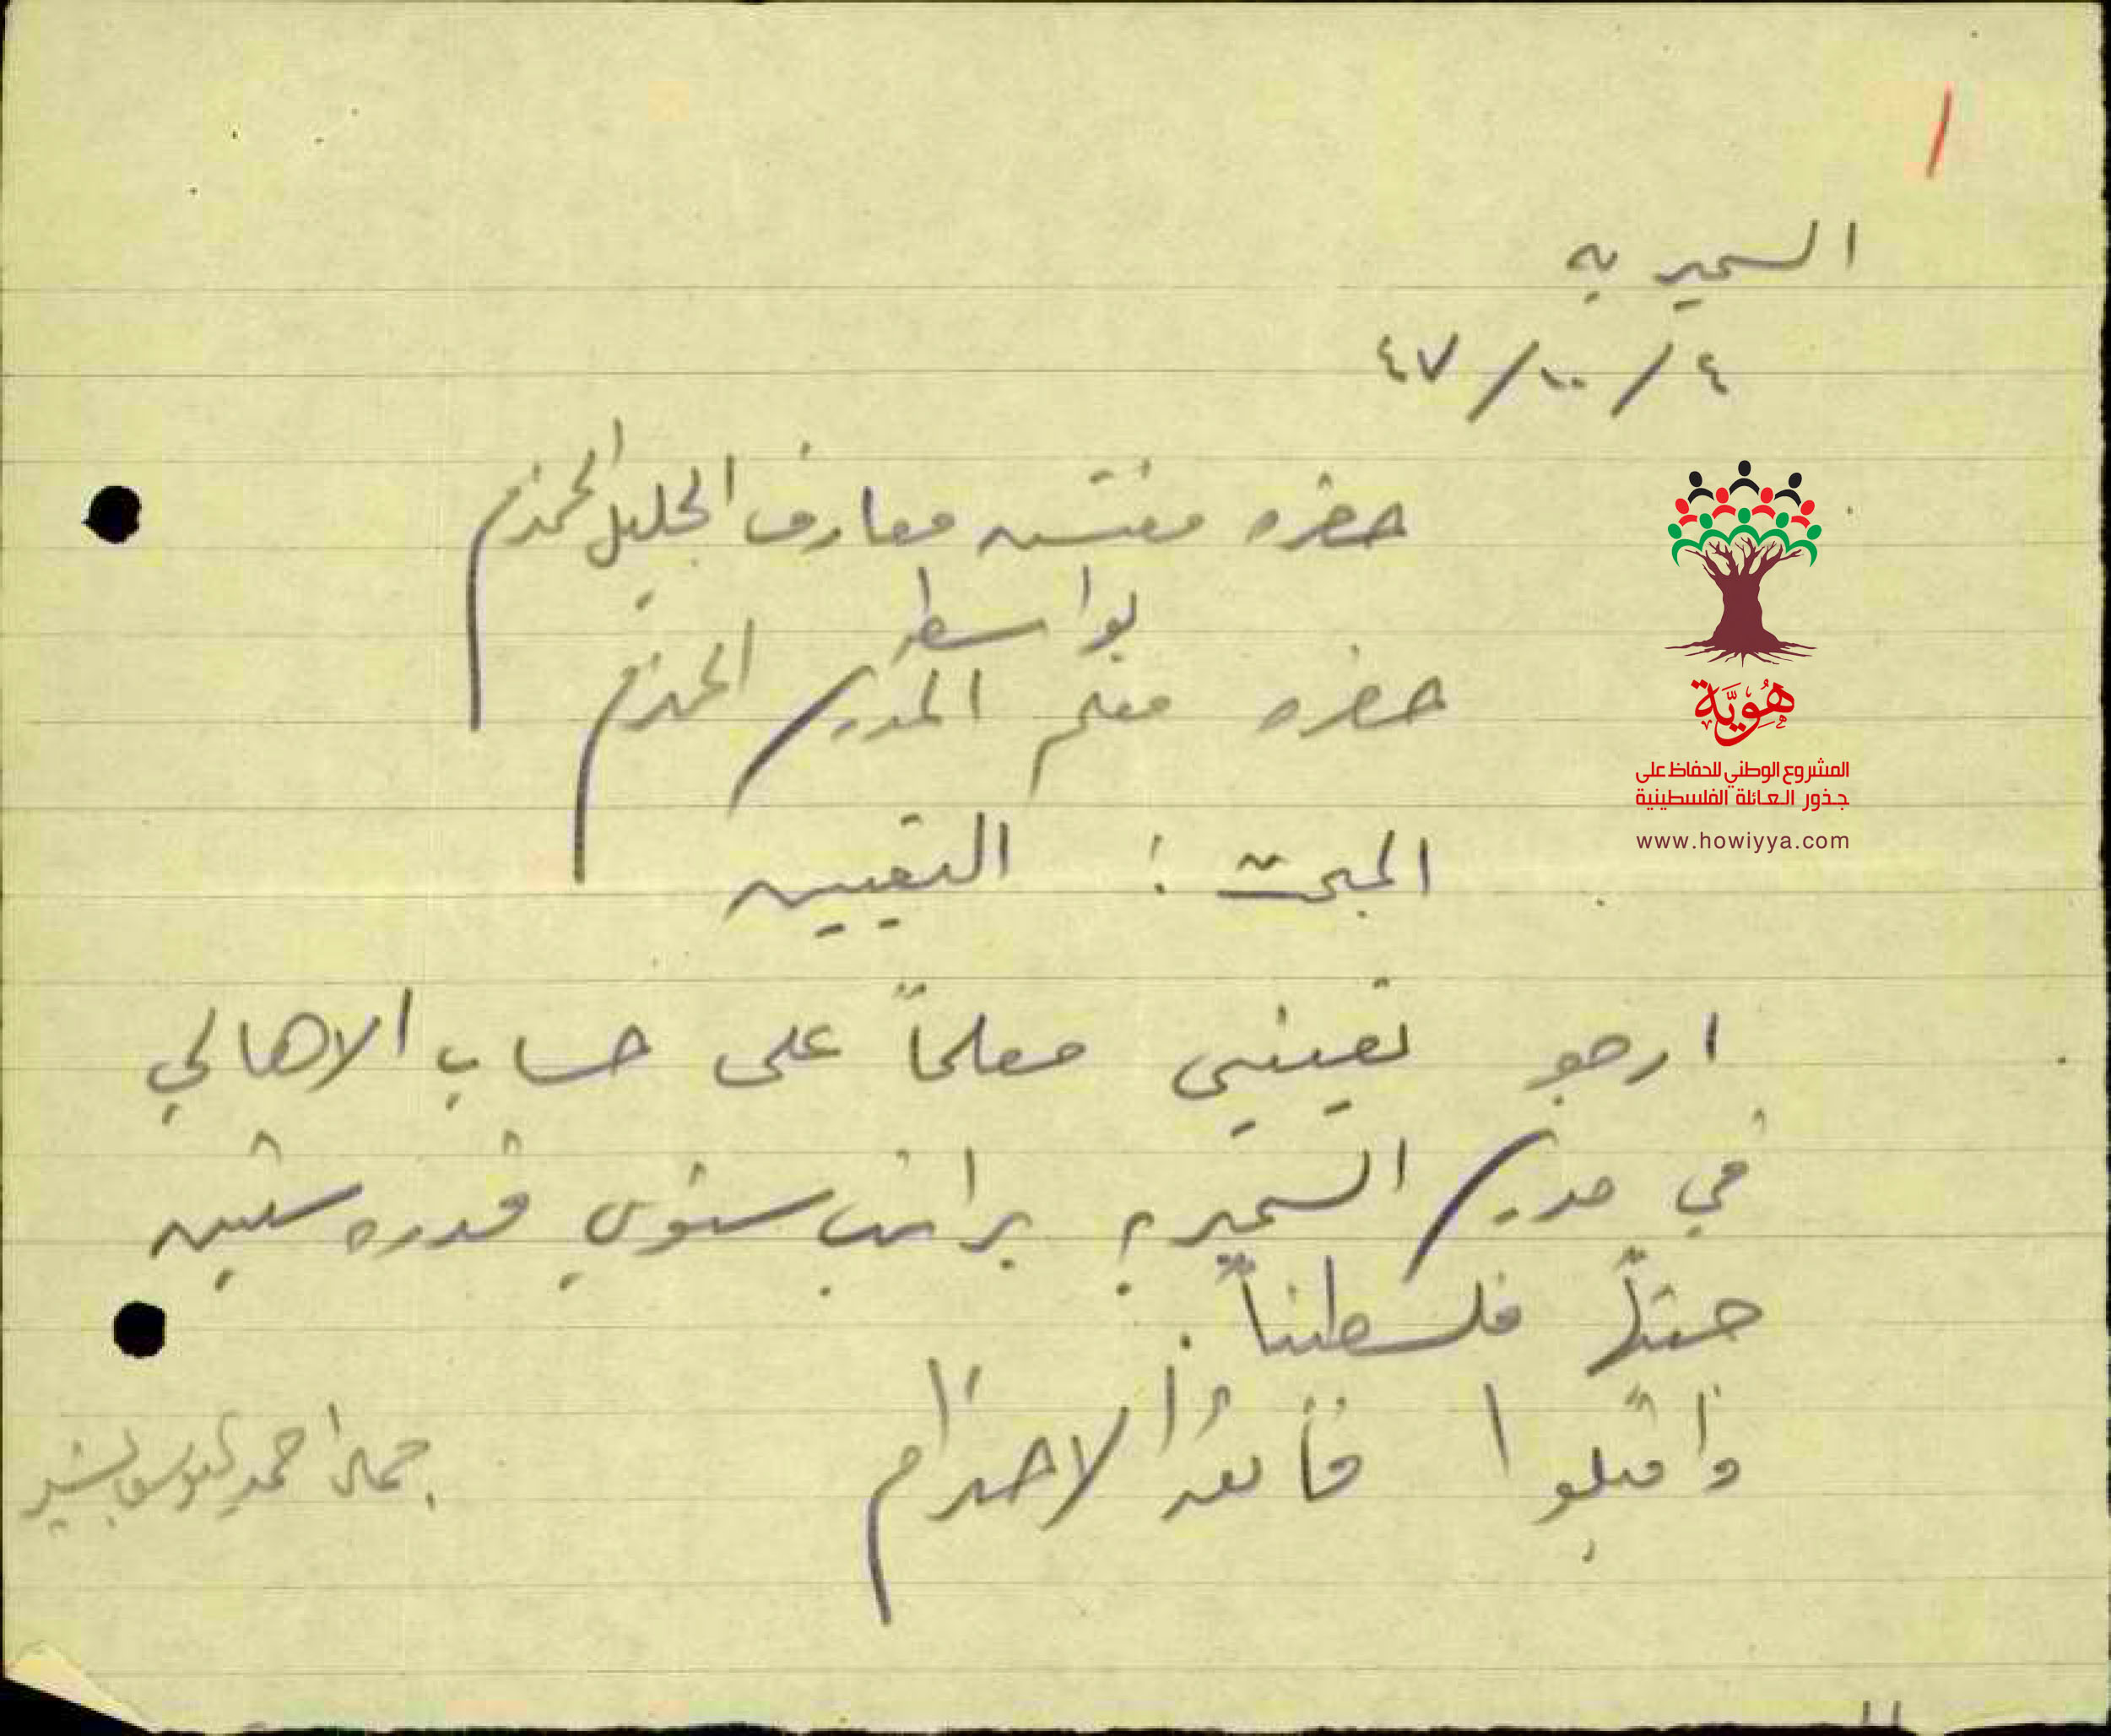 ١
السميريه
٤/١٠/٤٧
حضرة مفتش معارف الجليل المحترم
بواسطة
حضرة معلم المدرسة المحترم
المبحث : التعيين
ارجو تعييني معلماً على حساب الاهالي
في مدرسة السميرية براتب سنوي قدره ستين
جنيهاً فلسطينياً.
واقبلوا فائق الاحترام
جمال احمد اليوسف بشير
هُوِيَّة
المشروع الوطني للحفاظ على
جذور العائلة الفلسطينية
www.howiyya.com